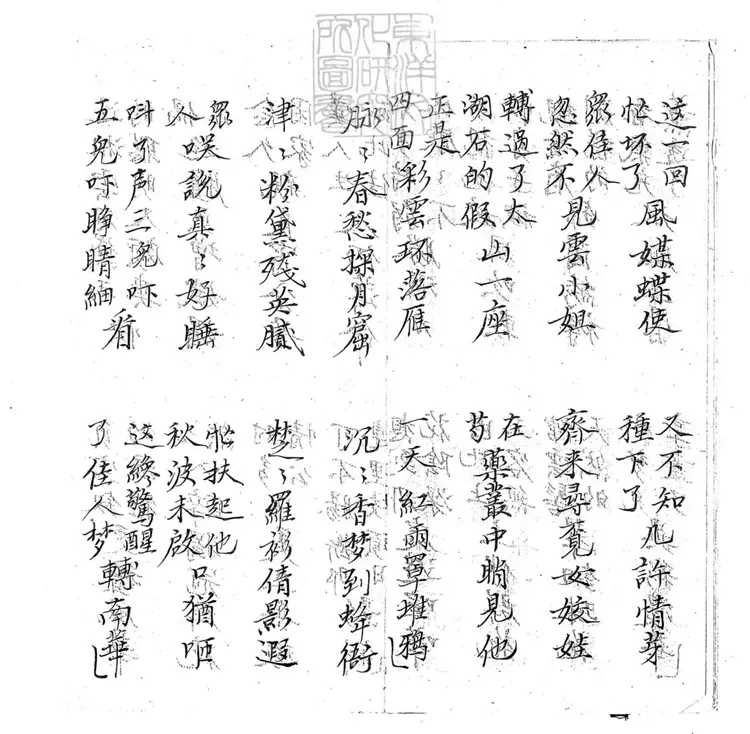 東洋文化研究所圖書
这一回忙坏了風媒蝶使
又不知種下了几許情芽
眾佳人忽然不見雲小姐
齊来尋覔女姣娃
轉過了太湖石的假山一座
在芍藥叢中睄見他
正是四面彩雲琢落雁
一天紅雨罩堆鴉
脉〻春愁探月窟
沉〻香梦到蜂衙
津〻粉黛残英膩
楚〻羅衫倩影遐
眾人咲説真〻好睡
忙扶起他秋波未啟口猶咂
呌了声三兒吓五兒吓睁睛細看
这纔驚醒了佳人梦轉南華